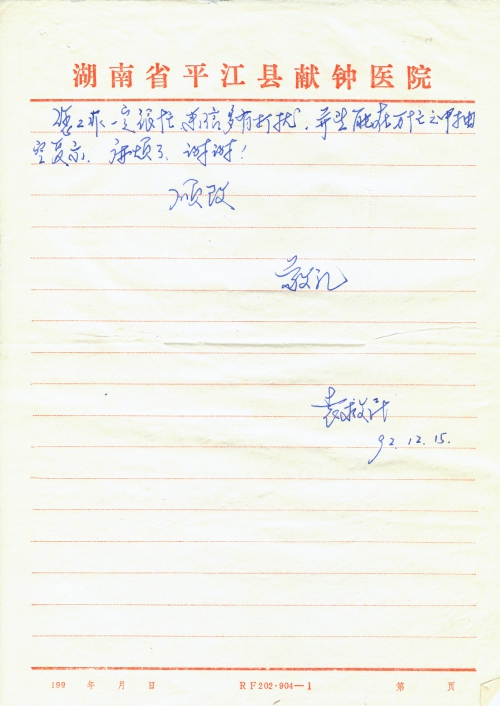 湖南省平江县献钟医院
您工作一定很忙,来信多有打扰,并望能在万忙之中抽
空复示,麻烦了,谢谢!
顺致
敬礼
袁
92.12.15.
199 年 月 日 RF202·904—1 第 页